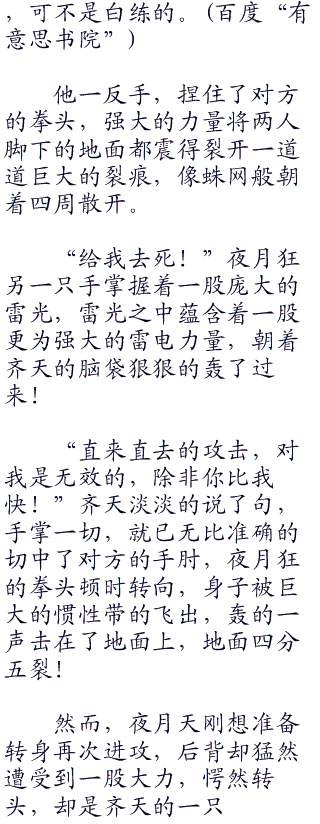 ，可不是白练的。(百度“有
意思书院”)
他一反手，捏住了对方
的拳头，强大的力量将两人
脚下的地面都震得裂开一道
道巨大的裂痕，像蛛网般朝
着四周散开。
“给我去死！”夜月狂
另一只手掌握着一股庞大的
雷光，雷光之中蕴含着一股
更为强大的雷电力量，朝着
齐天的脑袋狠狠的轰了过
来！
“直来直去的攻击，对
我是无效的，除非你比我
快！”齐天淡淡的说了句，
手掌一切，就已无比准确的
切中了对方的手肘，夜月狂
的拳头顿时转向，身子被巨
大的惯性带的飞出，轰的一
声击在了地面上，地面四分
五裂！
然而，夜月天刚想准备
转身再次进攻，后背却猛然
遭受到一股大力，愕然转
头，却是齐天的一只